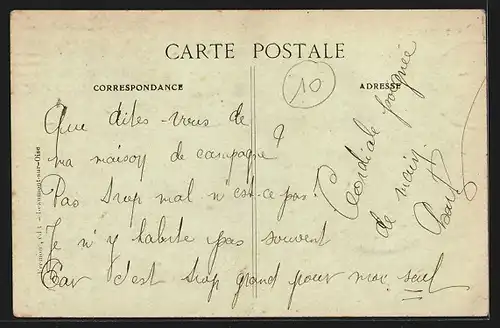 CARTE POSTALE
CORRESPONDANCE
ADRESSE
10
Que dites-vous de
ma maison de campagne ?
Pas trop mal n'est-ce pas?
Je n'y habite pas souvent
Car c'est trop grand pour moi seul
Cordiale poignée
de main